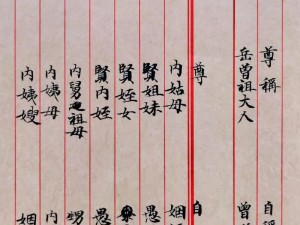 尊稱
岳曾祖大人
尊
內姑母
賢姐妹
賢姪女
賢內姪
內舅祖母
內姨母
內姨嫂
自稱
曾
自
姻
愚
愚
甥
內
姻